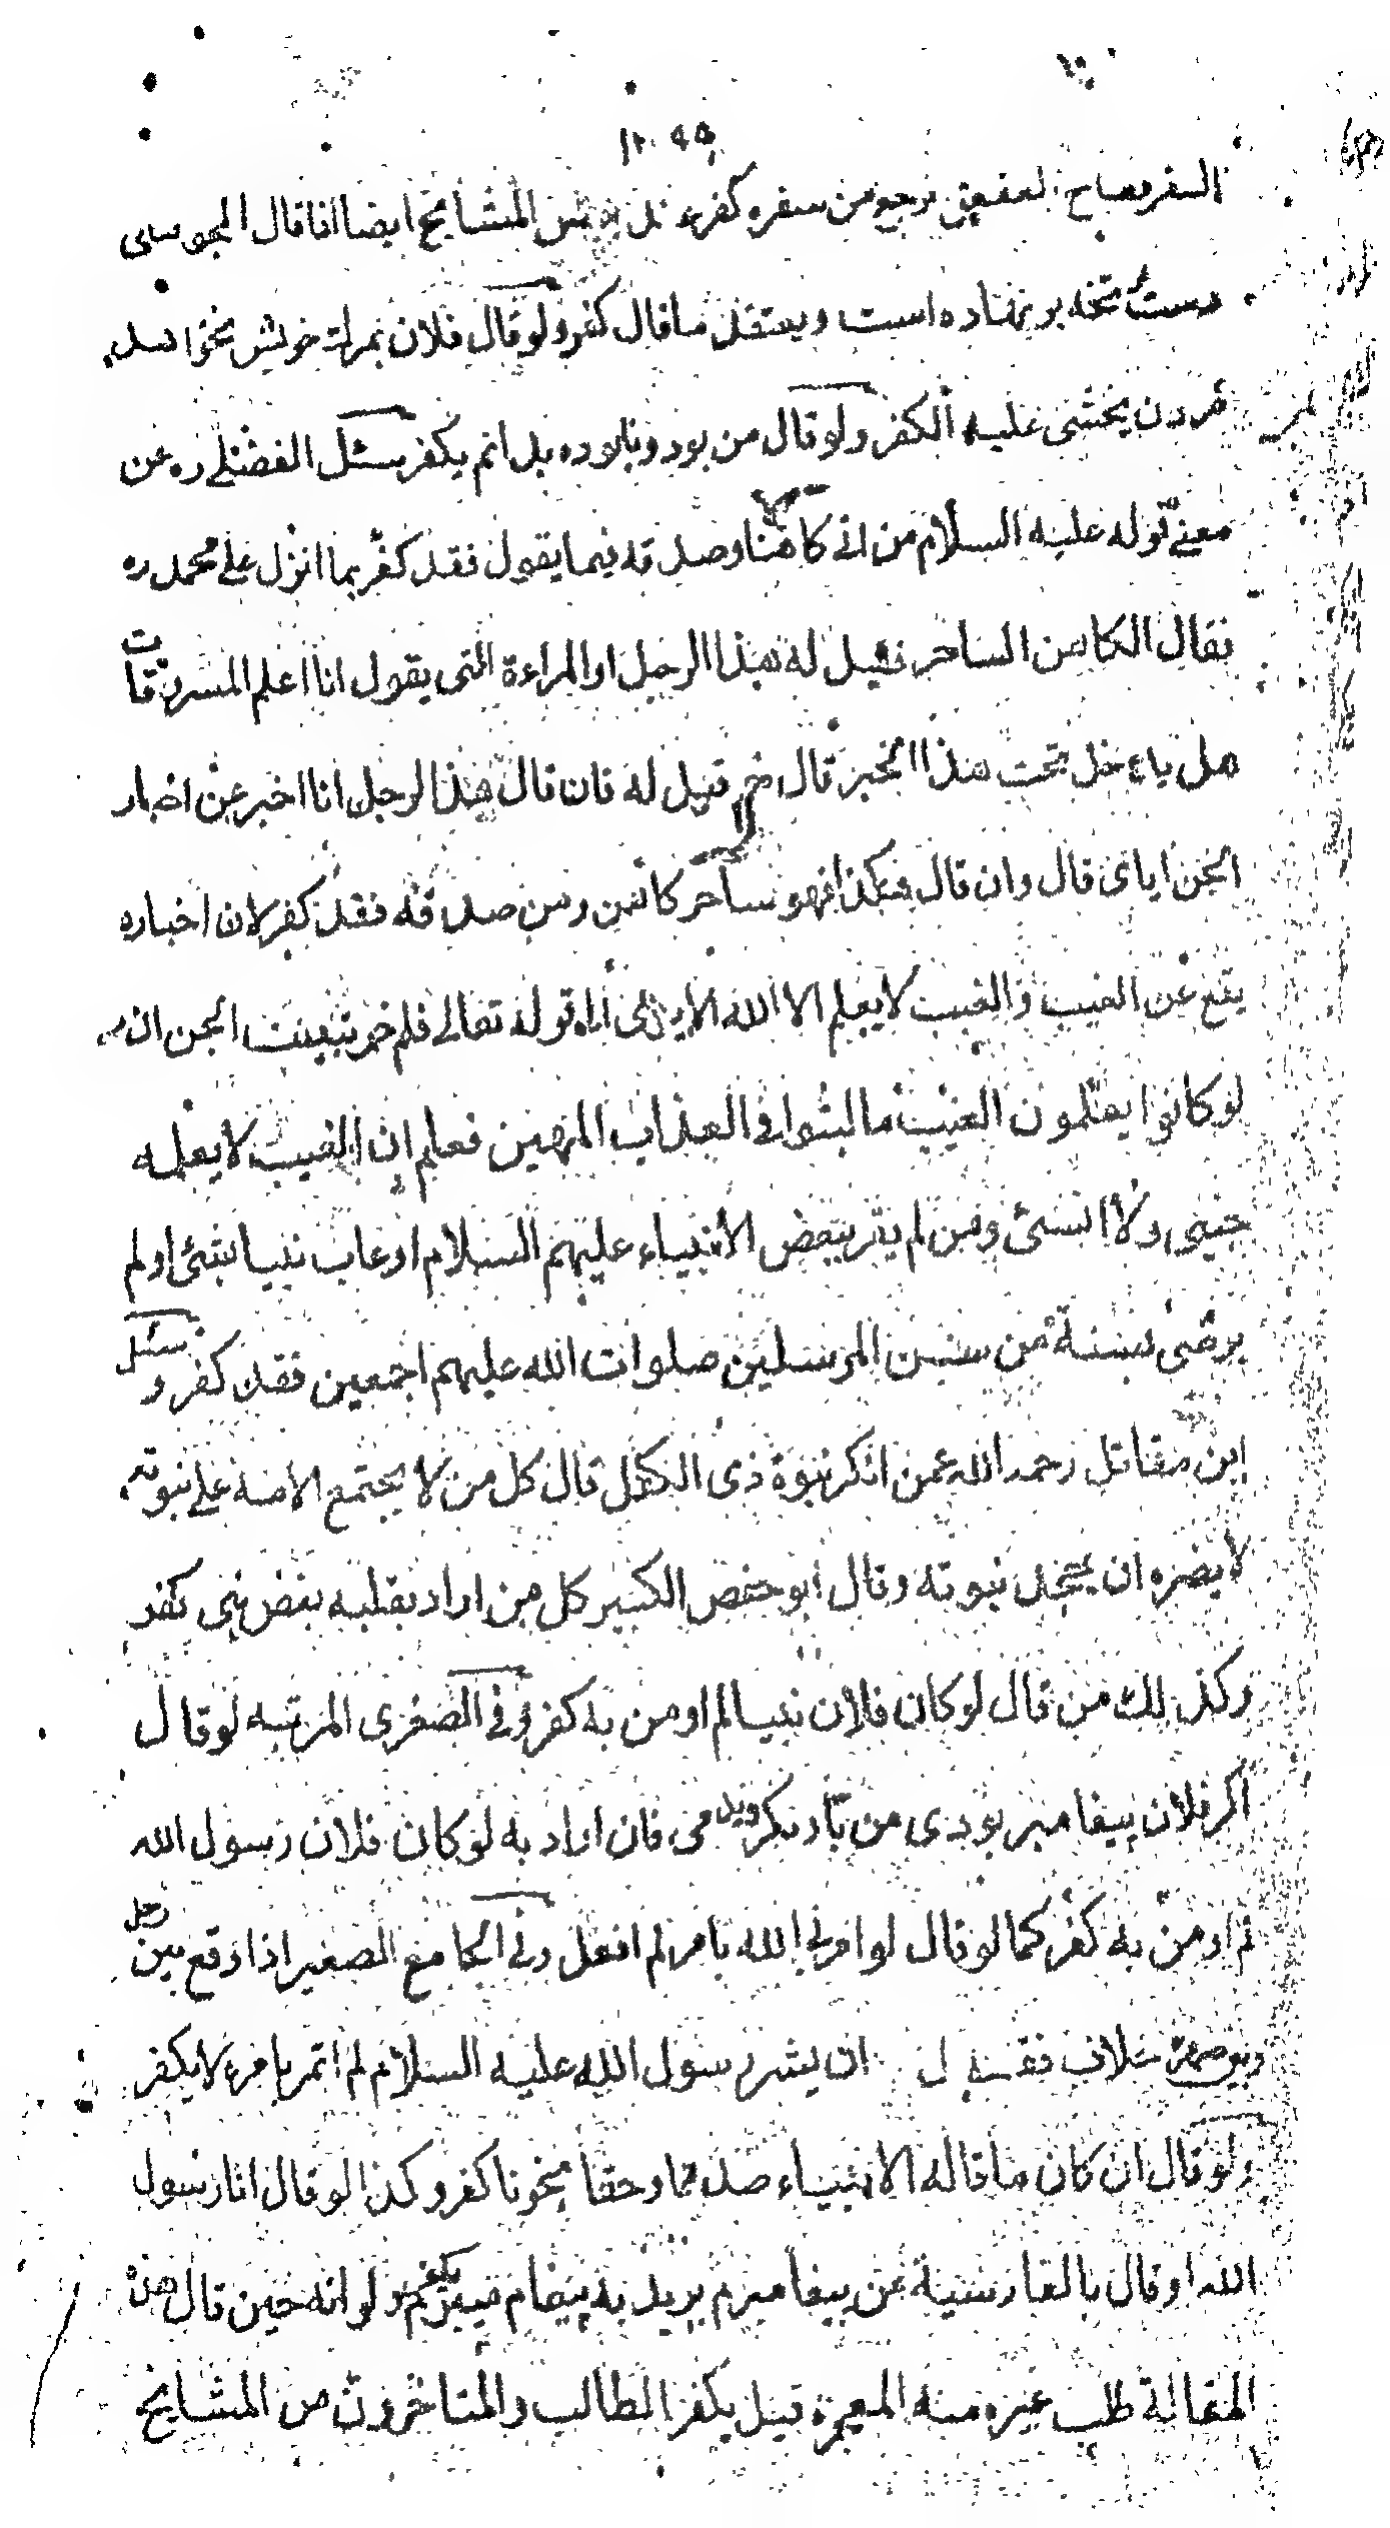 السفر فصاح العقعق فرجع من سفره كفر عند بعض المشايخ ايضا اذا قال المجوسى
دست تخه بر نهاده است ويعتقد ما قال كفر ولو قال فلان بمرك خويش نخواهد
مردن يخشى عليه الكفر ولو قال من بود ونابوده بدانم يكفر سئل الفضلے ره عن
معنے قوله عليه السلام من اتے كاهنا وصدقه فيما يقول فقد كفر بما انزل علے محمد ره
فقال الكاهن الساحر فقيل له هذا الرجل او المراءة التى يقول انا اعلم المسروقات
هل يدخل تحت هذا الخبر قال نعم قيل له فان قال هذا الرجل انا اخبر عن اخبار
الجن اياى قال وان قال هكذا فهو ساحر كاهن ومن صدقه فقد كفر لان اخباره
يقع عن الغيب والغيب لا يعلم الا الله الا يرى الى قوله تعالے فلم خر تبينت الجن ان
لو كانوا يعلمون الغيب ما لبثوا فے العذاب المهين فعلم ان الغيب لا يعلمه
جنى ولا انسى ومن لم يقر ببعض الانبياء عليهم السلام او عاب نبيا بشئ او لم
يرضى بسنة من سنن المرسلين صلوات الله عليهم اجمعين فقد كفر و سئل
ابن مقاتل رحمه الله عمن انكر نبوة ذى الكفل قال كل من لا يجتمع الامة علے نبوته
لا يضره ان يجحد نبوته وقال ابو حفص الكبير كل من اراد بقلبه بغض نبى كفر
وكذلك من قال لو كان فلان نبيا لم اومن به كفر وفے الصغرى المرتبه لو قال
اكر فلان پيغامبر بودى من باو نكرويد مى فان اراد به لو كان فلان رسول الله
لم اومن به كفر كما لو قال لو امرنے الله بامر لم افعل وفے الجامع الصغير اذا وقع بين رجل
وبين صهره خلاف فقال ان بشر رسول الله عليه السلام لم اتمر بامره لا يكفر
ولو قال ان كان ما قاله الانبياء صدقا وحقا نجونا كفر وكذا لو قال انا رسول
الله او قال بالفارسية من پيغامبرم يريد به پيغام ميبرم يكفر ولو انه حين قال هذه
المقالة طلب غيره منه المعجزة قيل يكفر الطالب والمتاخرون من المشايخ